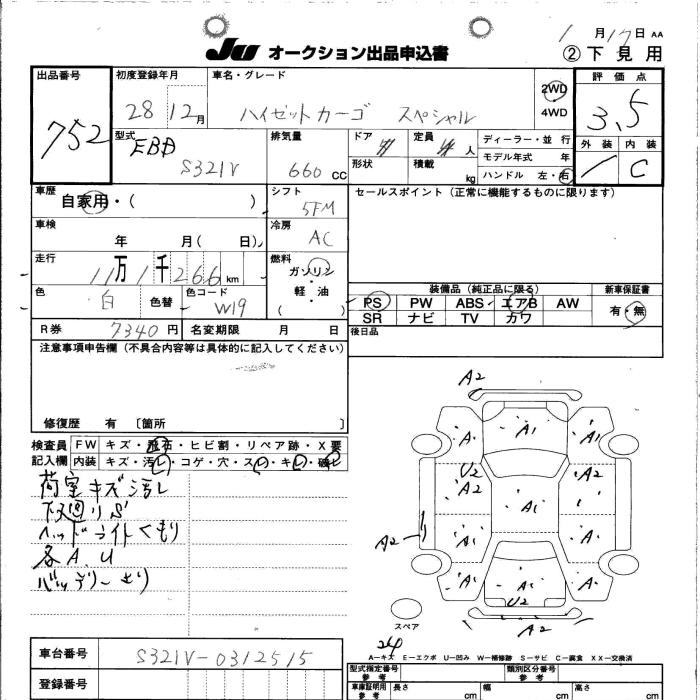 1月17 AA
JU オークション出品申込書
②下見用
出品番号 初度登録年月 車名・グレード 評価点
752
28 12月
ハイゼットカーゴ スペシャル
2WD
4WD
3.5
型式 EBD
S321V
排気量
660 CC
ドア 4
定員 4人
形状
積載 kg
ディーラー・並行
モデル年式 年
ハンドル 左・右
外装 内装
/ C
車歴
自家用・( )
シフト
5FM
セールスポイント(正常に機能するものに限ります)
車検
年 月( 日)
冷房
AC
走行
11万1千266km
燃料
ガソリン
・
軽油
( )
色
白
色替
色コード
W19
装備品(純正品に限る) 新車保証書
PS PW ABS エアB AW
SR ナビ TV カワ
有・無
R券 7340円 名変期限 月 日
後日品
注意事項申告欄(不具合内容等は具体的に記入してください)
修復歴 有 〔箇所 〕
検査員 FW キズ・飛石・ヒビ割・リペア跡・X要
記入欄 内装 キズ・汚レ・コゲ・穴・スレ・キレ・破レ
荷室キズ汚レ
下廻りS
ヘッドライトくもり
各A.U
バッテリー
A2
A. A1 A.
U2
A2 A2
A2 A1
A1 A.
A1 A1 A1
U2
A2
スペア
A-キズ E-エクボ U-凹み W-補修跡 S-サビ C-腐食 XX-交換済
車台番号 S321V-0312515
登録番号
型式指定番号 参考
類別区分番号 参考
車庫証明用 参考
長さ cm 幅 cm 高さ cm